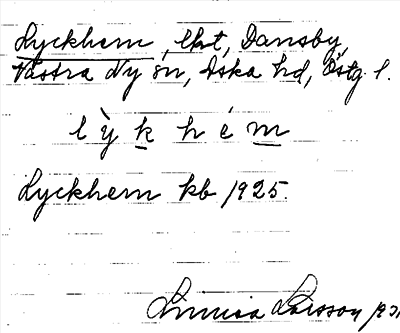 Lyckhem, lht, Dansby,
Västra Ny sn, Aska hd, Östg. l.
l ỳ k h é m
Lyckhem kb 1925.
Linnea Larsson 193